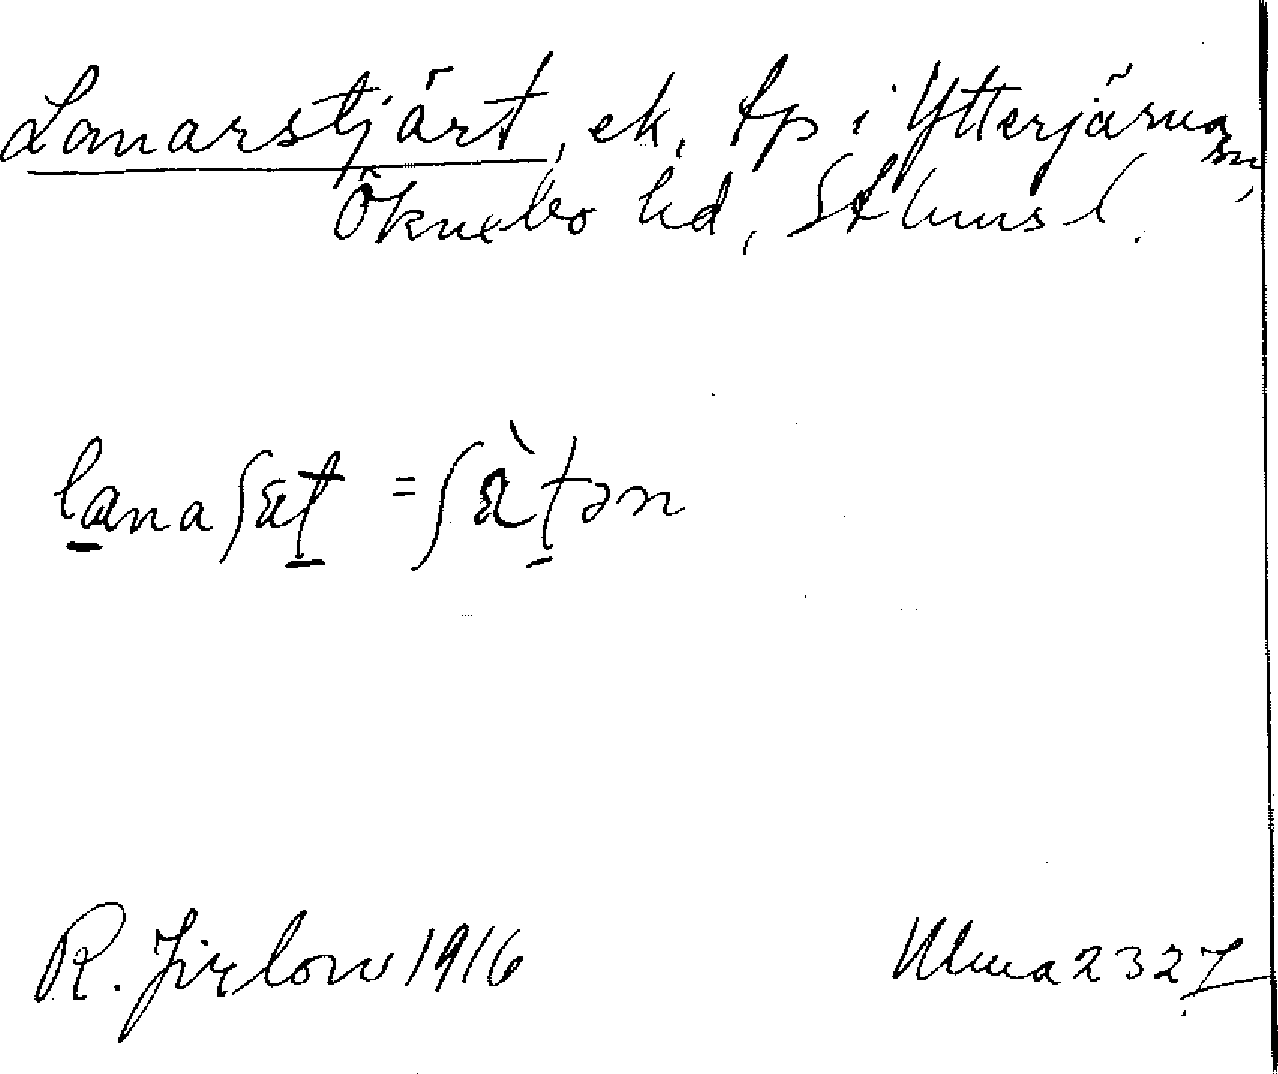 Lanarstjärt, ek, tp i Ytterjärna sn,
Öknebo hd, Sthms l.
lanaʃäṭ = ʃä̀ṭən
R. Jirlow 1916
Ulma 2327